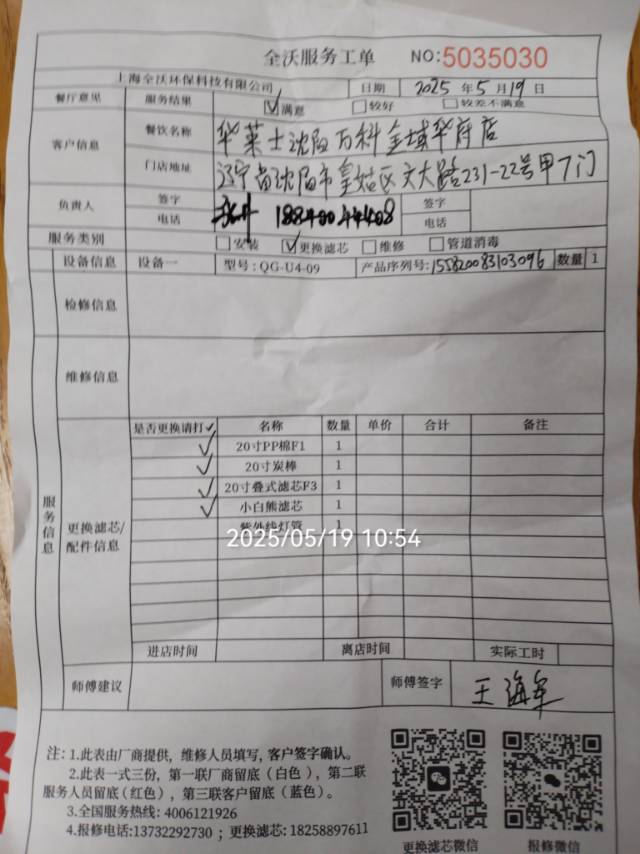 全沃服务工单 NO:5035030
上海全沃环保科技有限公司 日期 2025 年 5 月 19 日
餐厅意见 服务结果 满意 较好 较差不满意
客户信息 餐饮名称 华莱士沈阳万科金域华府店
门店地址 辽宁省沈阳市皇姑区文大路231-22号甲7门
负责人 签字 签字
电话 18840044408 电话
服务类别 安装 更换滤芯 维修 管道消毒
设备信息 设备一 型号:QG-U4-09 产品序列号:155820083103096 数量 1
检修信息
维修信息
服务信息
更换滤芯/配件信息
是否更换请打✓ 名称 数量 单价 合计 备注
✓ 20寸PP棉F1 1
✓ 20寸炭棒 1
✓ 20寸叠式滤芯F3 1
✓ 小白熊滤芯 1
紫外线灯管 1
2025/05/19 10:54
进店时间 离店时间 实际工时
师傅建议 师傅签字 王海军
注: 1.此表由厂商提供, 维修人员填写, 客户签字确认。
2.此表一式三份, 第一联厂商留底(白色), 第二联
服务人员留底(红色), 第三联客户留底(蓝色)。
3.全国服务热线: 4006121926
4.报修电话:13732292730 ; 更换滤芯: 18258897611
更换滤芯微信 报修微信